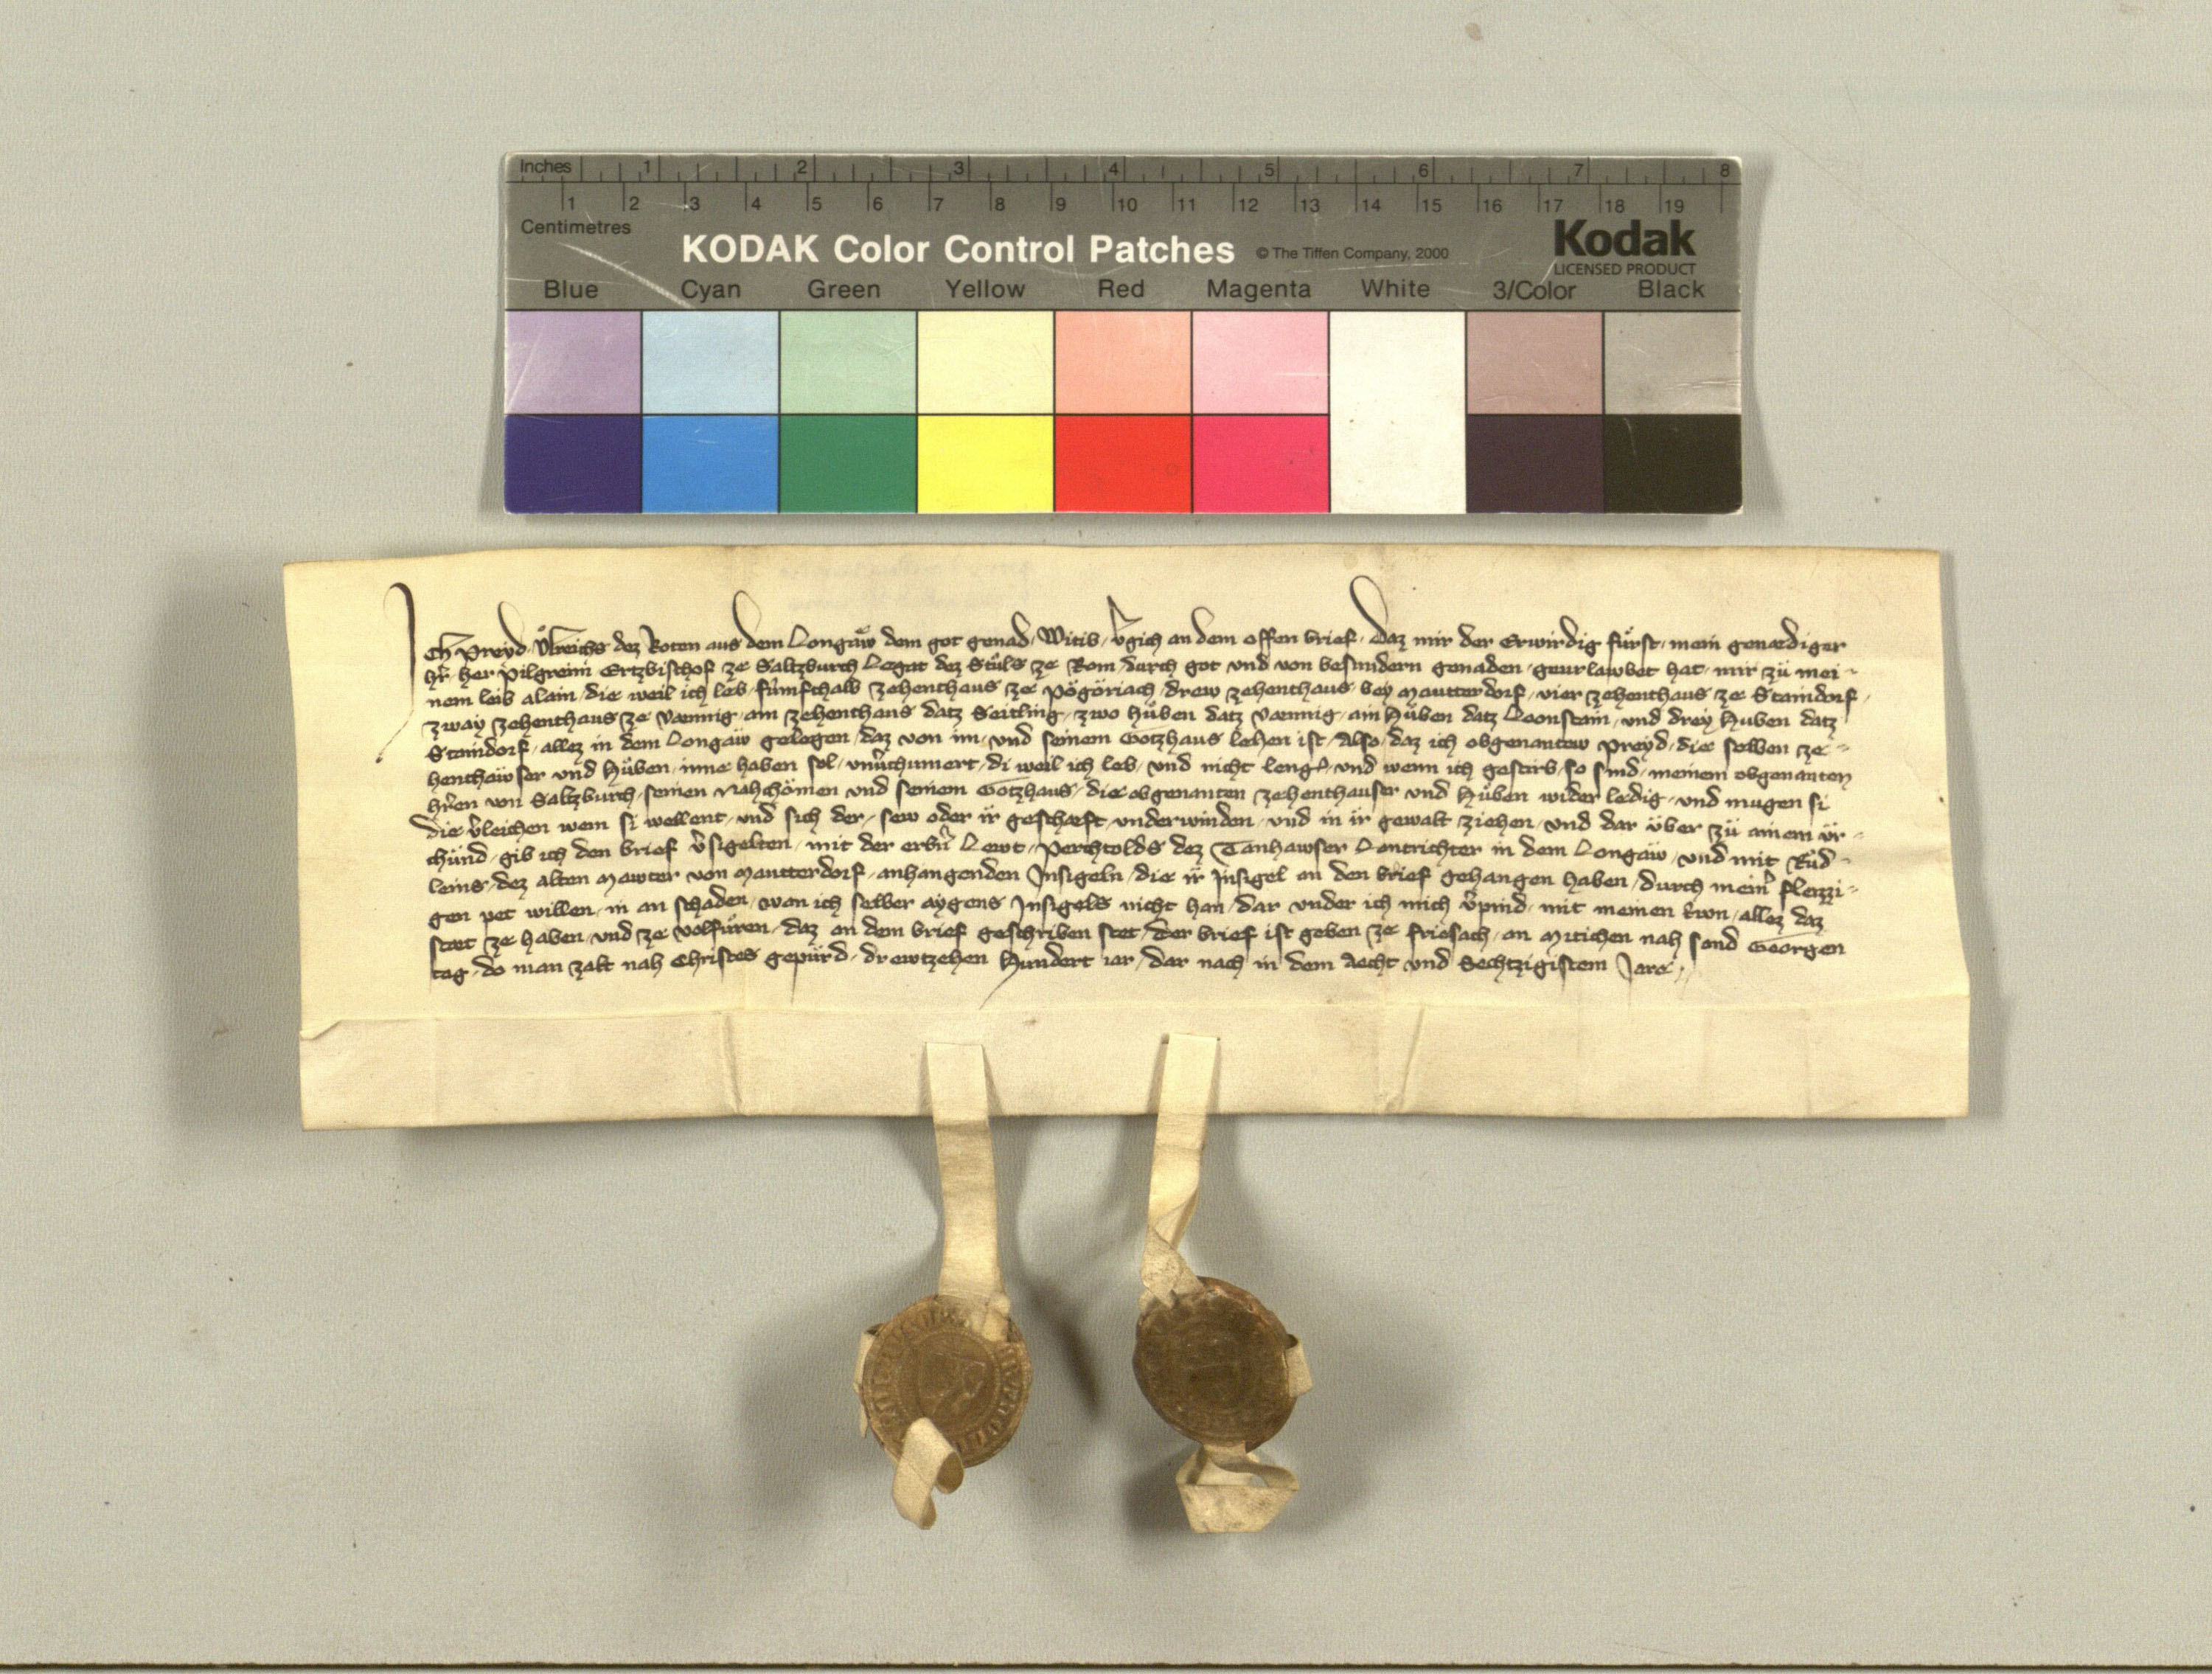 Inches 1 2 3 4 5 6 7 8
1 2 3 4 5 6 7 8 9 10 11 12 13 14 15 16 17 18 19
Centimetres
KODAK Color Control Patches © The Tiffen Company, 2000 Kodak
LICENSED PRODUCT
Blue Cyan Green Yellow Red Magenta White 3/Color Black
Ich Preyd, Ůlreichs dez Roten aus dem Longaw dem got genad, Witib, vgich an dem offen brief, daz mir der Erwirdig fürst, mein genædiger
hr̄ her Pilgreim Ertzbischof ze Saltzburch Legat dez Stůls ze Rom durch got vnd von besundern genaden, geurlawbet hat, mir zů mei-
nem leib alain, die weil ich leb, fůmfthalb zehenthaus ze Pögöriach, drew zehenthaus bey Mautterdorf, vier zehenthaus ze Staindorf,
zway zehenthaus ze Vænnig, ain zehenthaus datz Seitling, zwo hůben datz Vænnig, ain Hůben datz Loonstain, vnd drey Huben datz
Staindorf, allez in dem Longaw gelegen, daz von im, vnd seinem Gotzhaus lehen ist, Also, daz ich obgenantew Preyd, die selben ze-
henthäwser vnd Hůben, inne haben sol, vnuchumert, di weil ich leb, vnd nicht leng, vnd wenn ich gestirb, so sind, meinem obgenanten
hr̄en von Saltzburch, seinen Nahchömen vnd seinem Gotzhaus, die obgenanten zehenthauser vnd Hůben wider ledig, vnd mugen si
die v̄leichen wem si wellent, vnd sich der, sew oder ir geschæft, vnderwinden, vnd in ir gewalt ziehen, vnd dar über zů ainem vr-
chünd, gib ich den brief v̄sigelten, mit der erbn̄ Lewt, Perchtolds dez Tanhawser Lantrichter in dem Longaw, vnd mit Růd-
leins, dez alten Mawter von Mautterdorf, anhangenden Insigeln, die ir Insigel an den brief gehangen haben, durch mein̄ fleizzi-
gen pet willen, in an schaden, wan ich selber aygens Insigels nicht han, dar vnder ich mich v̄pind, mit meinen trwn, allez daz
stæt ze haben, vnd ze volfůren, daz an dem brief geschriben stet, der brief ist geben ze Friesach, an Mitichen nah sand Georgen
tag, do man zalt nah Christes gepürd, drewtzehen Hundert iar, dar nach in dem Aecht vnd Sechtzigistem Jare,